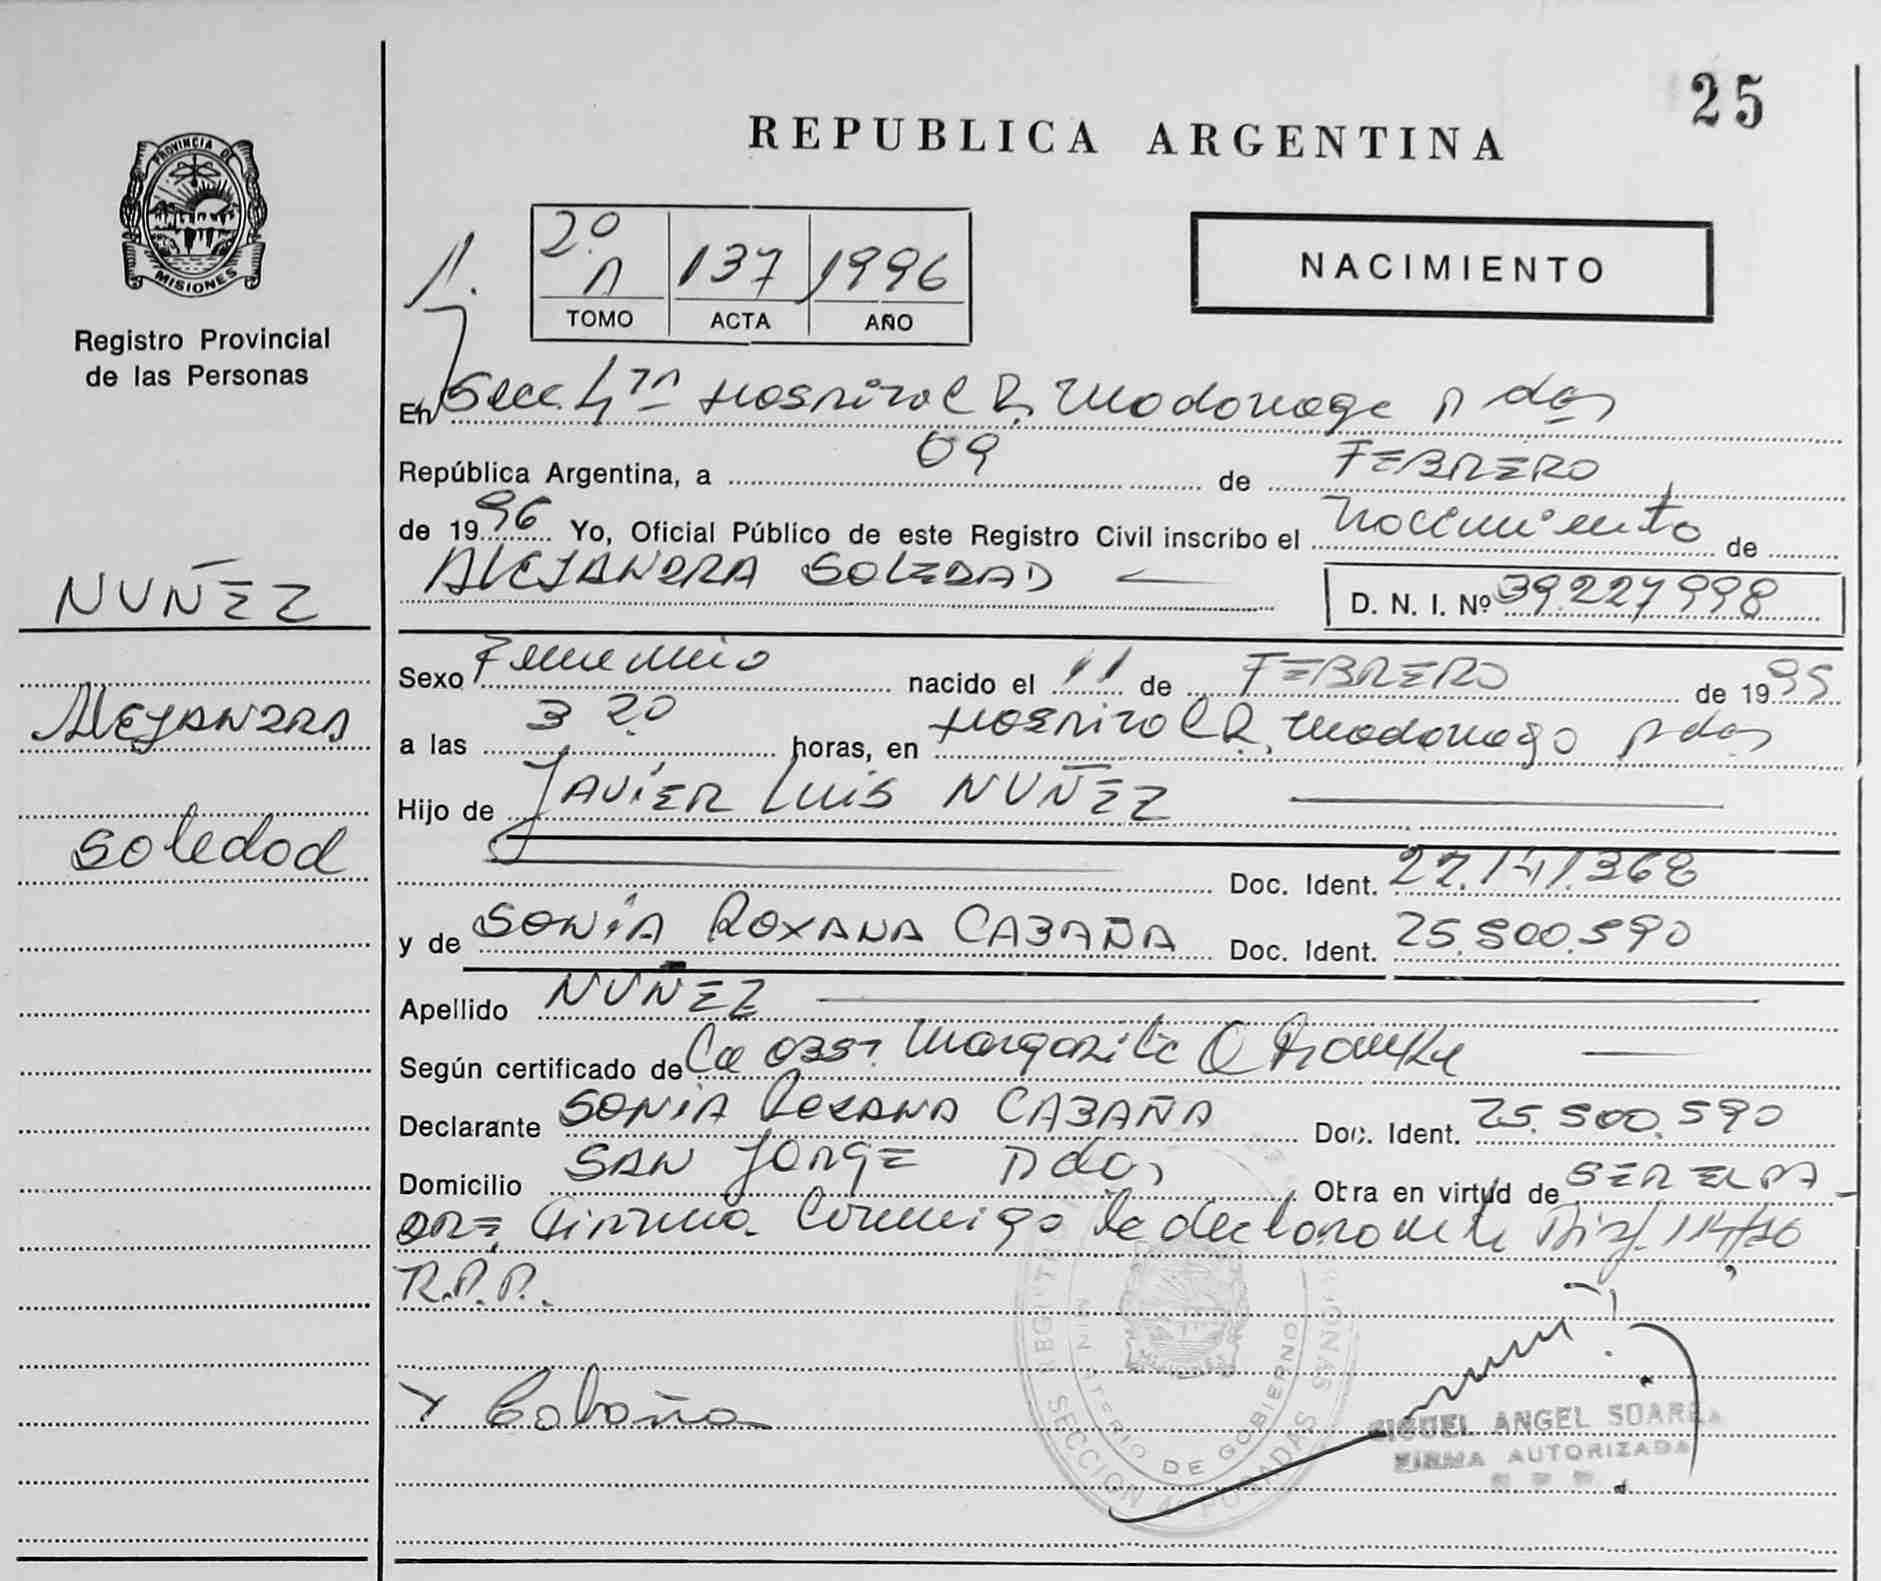 25
REPUBLICA ARGENTINA
PROVINCIA DE
MISIONES
Registro Provincial
de las Personas
2º A 137 1996
TOMO ACTA AÑO
NACIMIENTO
En Secc. 4ta Hospital R. Madariaga Pdas
República Argentina, a 09 de FEBRERO
de 1996 Yo, Oficial Público de este Registro Civil inscribo el nacimiento de
ALEJANDRA SOLEDAD
D. N. I. Nº 39.227.998
NUÑEZ
Alejandra
Soledad
Sexo Femenino nacido el 11 de FEBRERO de 1995
a las 3 20 horas, en Hospital R. Madariaga Pdas
Hijo de JAVIER Luis NUÑEZ
Doc. Ident. 22.141.368
y de SONIA ROXANA CABAÑA Doc. Ident. 25.500.590
Apellido NUÑEZ
Según certificado de La Obst. Margarita
Declarante SONIA ROXANA CABAÑA Doc. Ident. 25.500.590
Domicilio SAN JORGE Pdas Otra en virtud de SER EL PA-
DRE, Firma conmigo la declarante Disp. 114/
R.P.P.
Cabaña
MIGUEL ANGEL SUAREZ
FIRMA AUTORIZADA
MINISTERIO DE GOBIERNO
SECCION 4 POSADAS